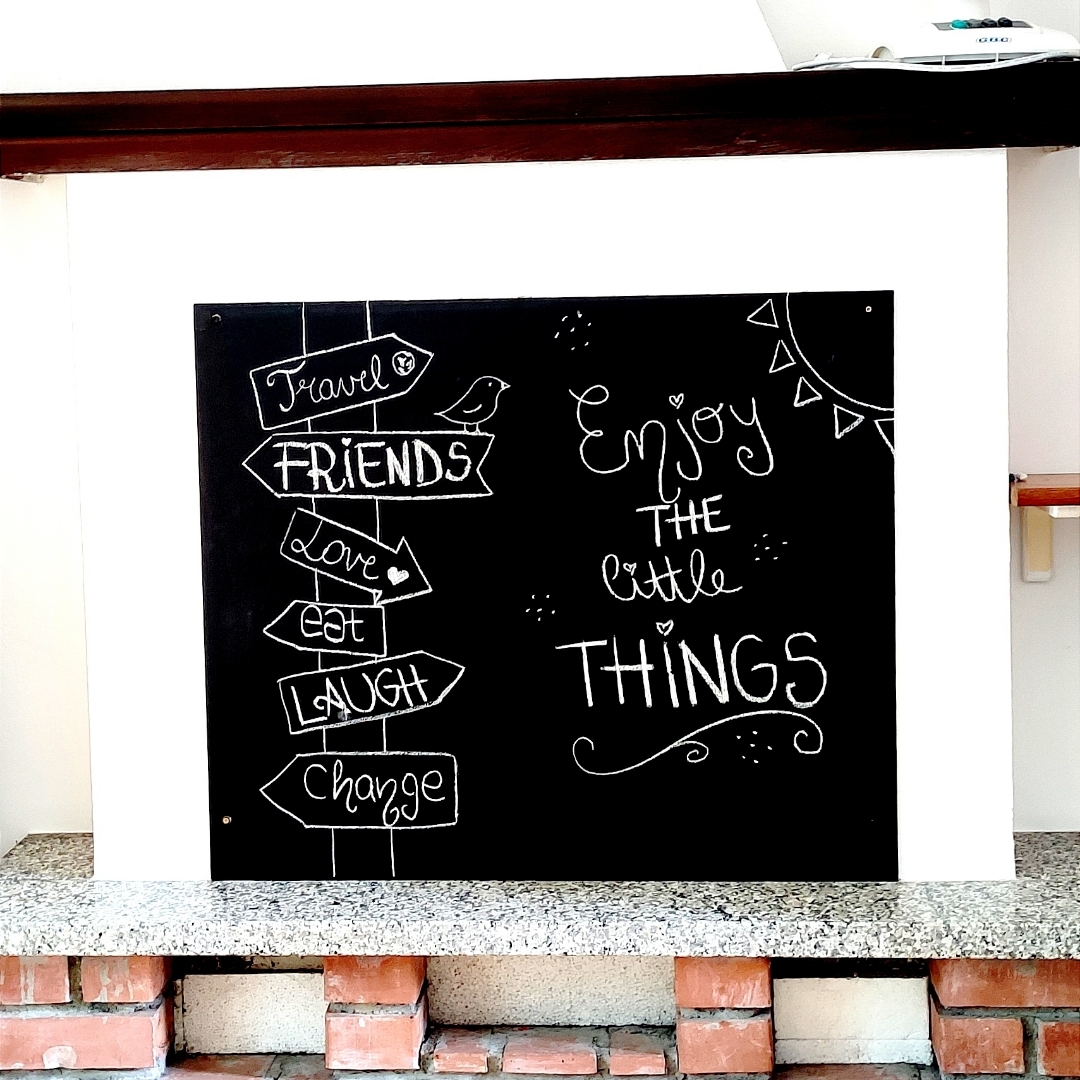 GBC
Travel
FRiENDS
Love
eat
LAUGH
change
Enjoy
THE
little
THiNGS